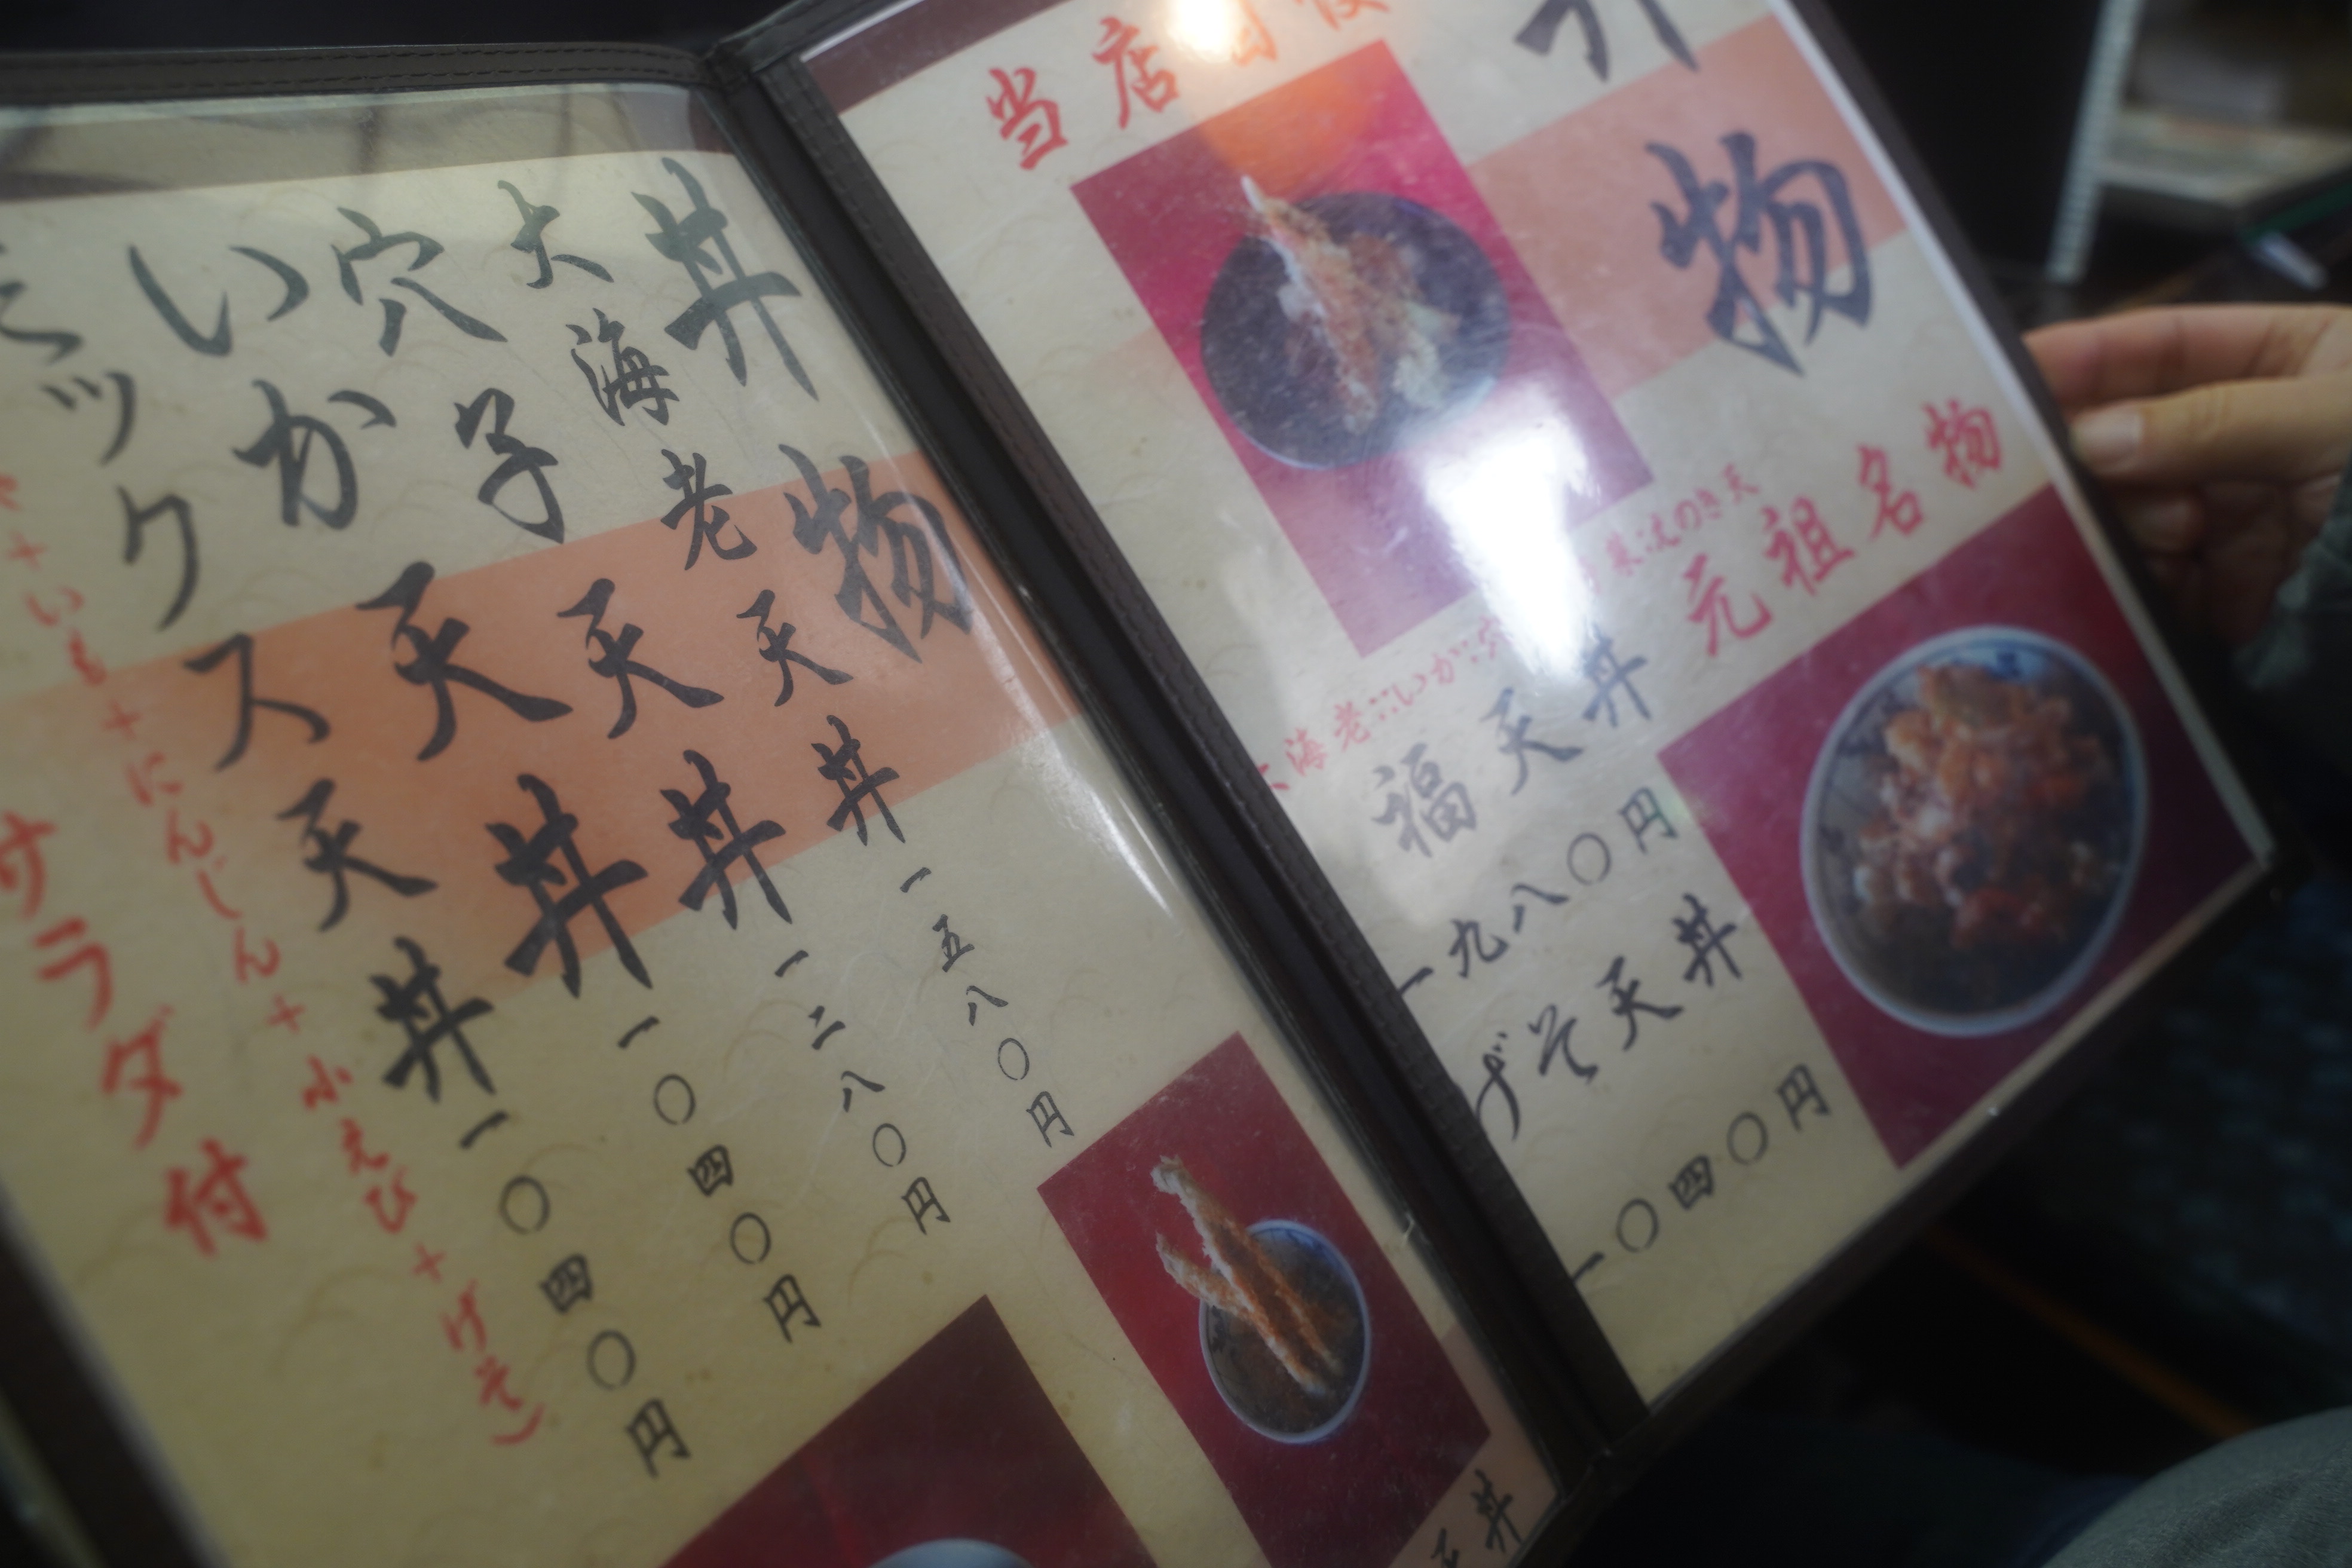 物
当店
元祖名物
のき天
大海老
いか
福天丼
一九八〇円
げそ天丼
一〇四〇円
丼物
大海老天丼
一五八〇円
穴子天丼
一二八〇円
いか天丼
一〇四〇円
ミックス天丼
一〇四〇円
+いも+にんじん+小えび+げそ)
サラダ付
天丼